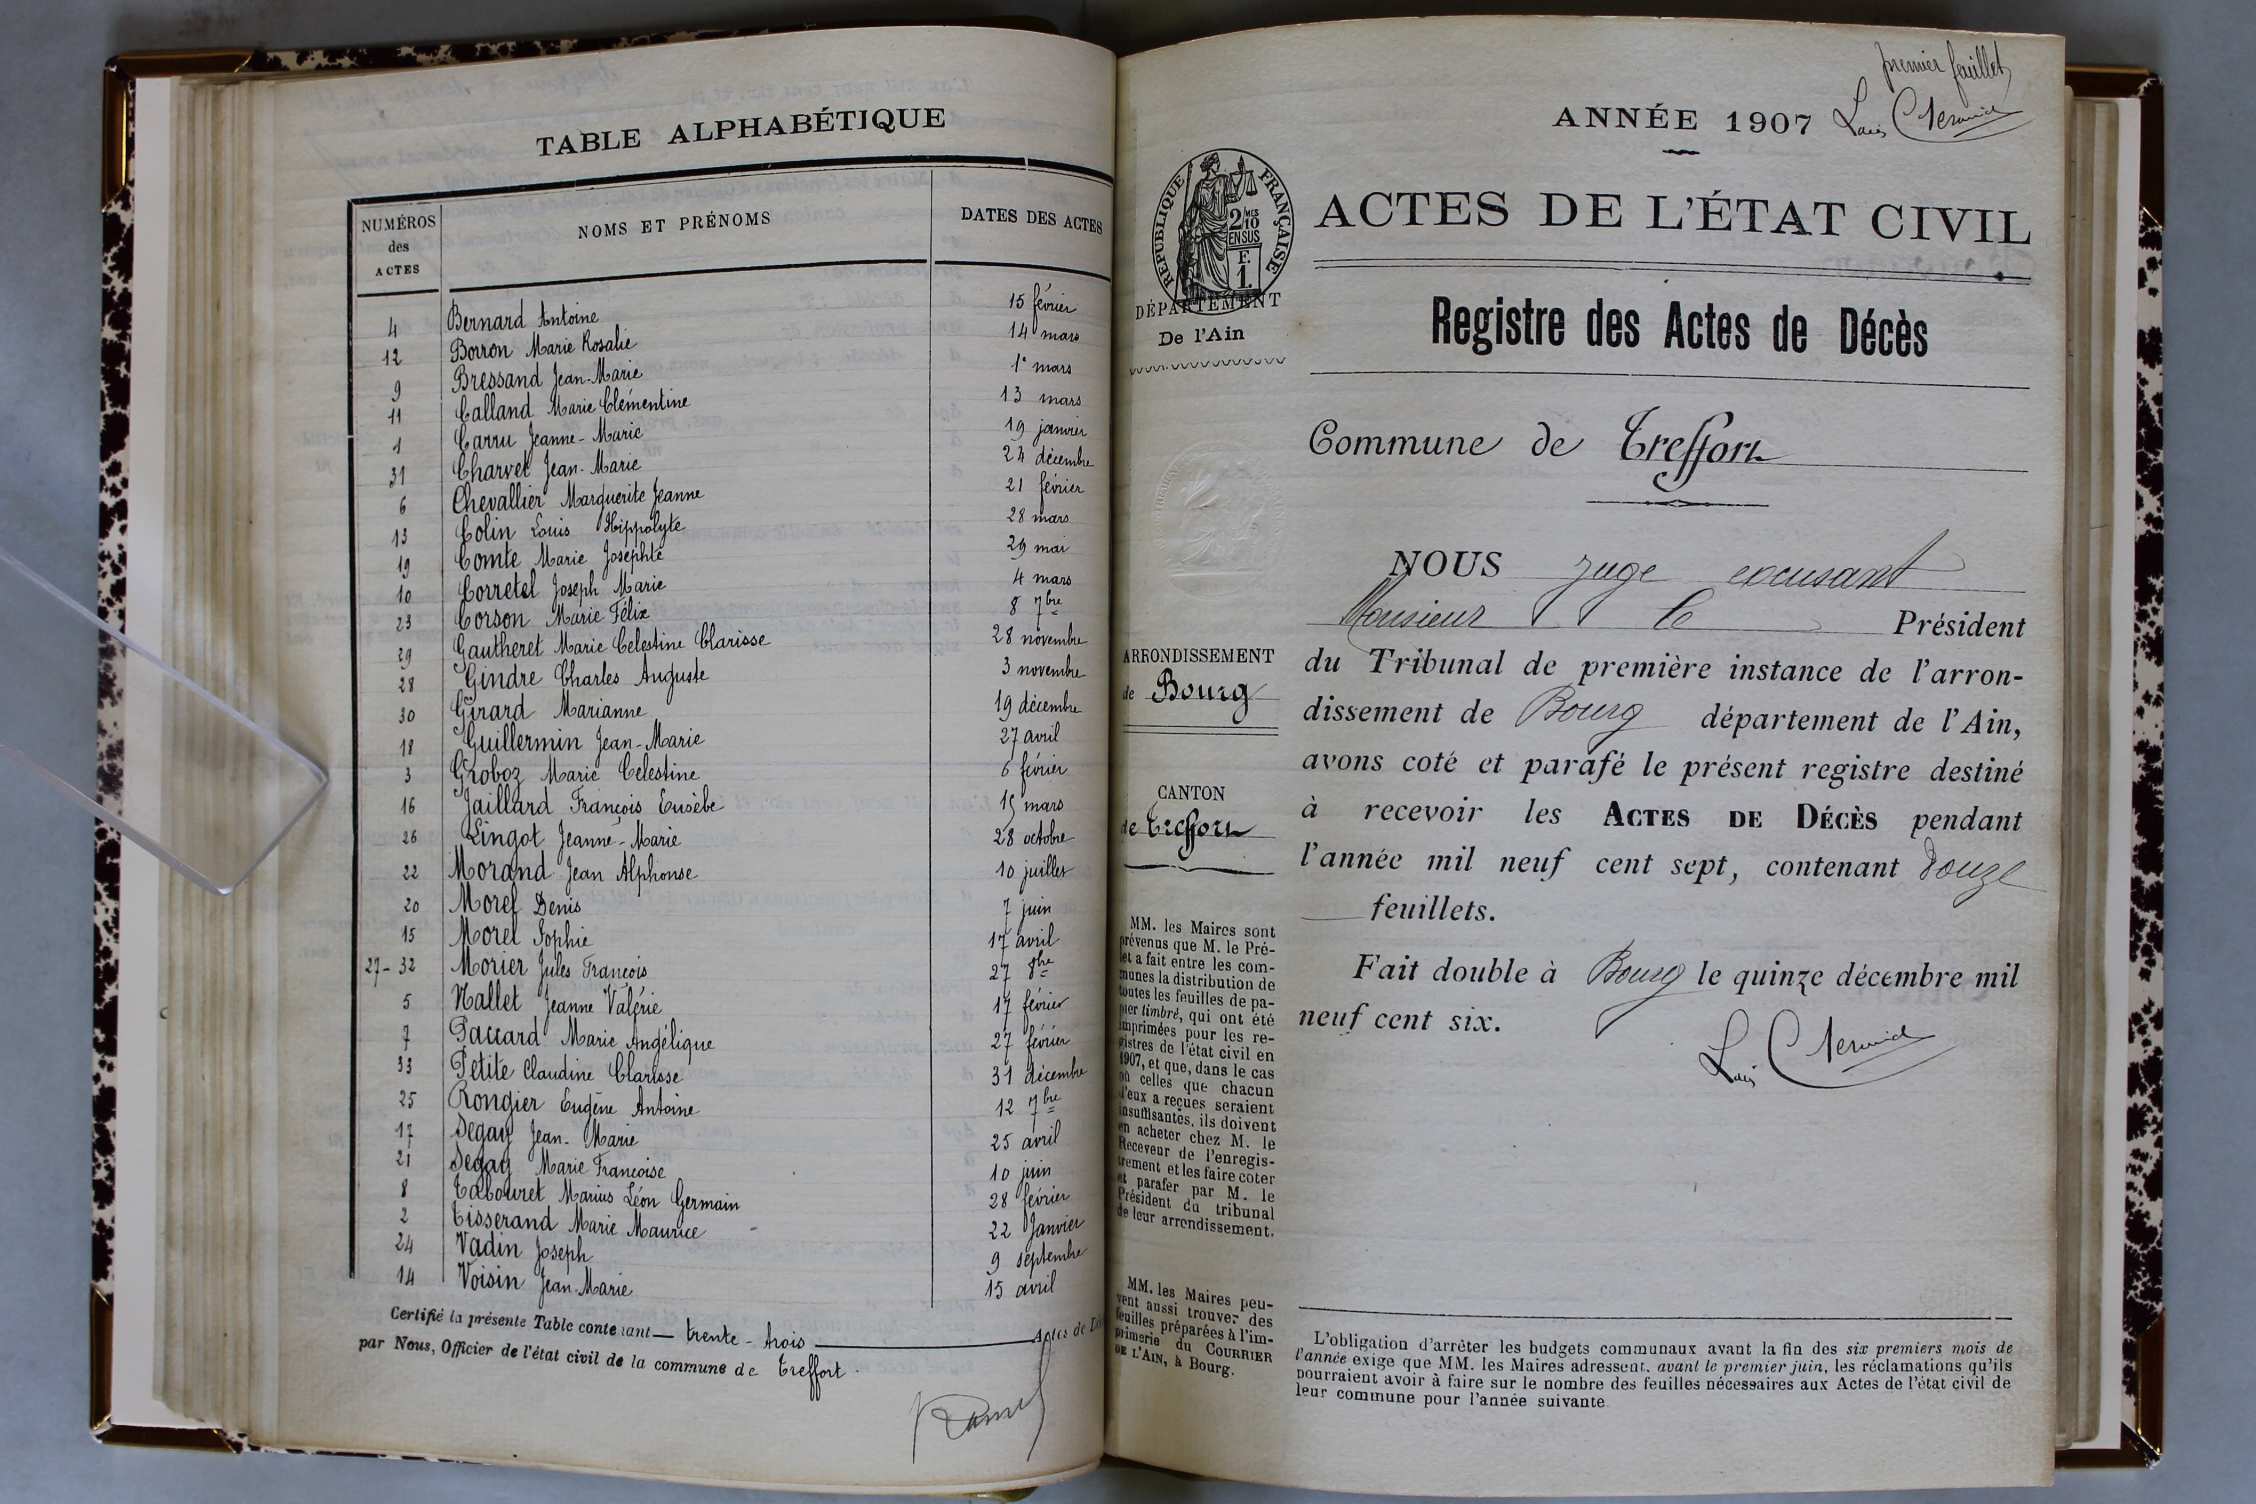 TABLE ALPHABÉTIQUE
NUMÉROS des ACTES NOMS ET PRÉNOMS DATES DES ACTES
4 Bernard Antoine 15 février
12 Borron Marie Rosalie 14 mars
9 Bressand Jean-Marie 1º mars
11 Calland Marie Clémentine 13 mars
1 Carru Jeanne-Marie 19 janvier
31 Charvet Jean-Marie 24 décembre
6 Chevallier Marguerite Jeanne 21 février
13 Colin Louis Hippolyte 28 mars
19 Comte Marie Josephte 29 mai
10 Corretel Joseph Marie 4 mars
23 Corson Marie Félix 8 7bre
29 Gautheret Marie Celestine Clarisse 28 novembre
28 Gindre Charles Auguste 3 novembre
30 Girard Marianne 19 décembre
18 Guillermin Jean-Marie 27 avril
3 Groboz Marie Celestine 6 février
16 Jaillard François Eusèbe 15 mars
26 Lingot Jeanne-Marie 28 octobre
22 Morand Jean Alphonse 10 juillet
20 Morel Denis 7 juin
15 Morel Sophie 17 avril
27-32 Morier Jules François 27 8bre
5 Nallet Jeanne Valérie 17 février
7 Paccard Marie Angélique 27 février
33 Petite Claudine Clarisse 31 décembre
25 Rongier Eugène Antoine 12 7bre
17 Segay Jean-Marie 25 avril
21 Segay Marie Francoise 10 juin
8 Tabouret Marius Léon Germain 28 février
2 Tisserand Marie Maurice 22 Janvier
24 Vadin Joseph 9 septembre
14 Voisin Jean-Marie 15 avril
Certifié la présente Table contenant trente-trois Actes de
par Nous, Officier de l'état civil de la commune de Treffort.
premier feuillet
ANNÉE 1907
RÉPUBLIQUE FRANÇAISE
2/10MES
EN SUS
F.
1.
ACTES DE L'ÉTAT CIVIL
DÉPARTEMENT
De l'Ain
Registre des Actes de Décès
Commune de Treffort
NOUS juge excusant
Monsieur le Président
du Tribunal de première instance de l'arron-
dissement de Bourg département de l'Ain,
avons coté et parafé le présent registre destiné
à recevoir les ACTES DE DÉCÈS pendant
l'année mil neuf cent sept, contenant douze
feuillets.
Fait double à Bourg le quinze décembre mil
neuf cent six.
ARRONDISSEMENT
de Bourg
CANTON
de Treffort
MM. les Maires sont
prévenus que M. le Pré-
fet a fait entre les com-
munes la distribution de
toutes les feuilles de pa-
pier timbré, qui ont été
imprimées pour les re-
gistres de l'état civil en
1907, et que, dans le cas
où celles que chacun
d'eux a reçues seraient
insuffisantes, ils doivent
en acheter chez M. le
Receveur de l'enregis-
trement et les faire coter
et parafer par M. le
Président du tribunal
de leur arrondissement.
MM. les Maires peu-
vent aussi trouver des
feuilles préparées à l'im-
primerie du COURRIER
DE L'AIN, à Bourg.
L'obligation d'arrêter les budgets communaux avant la fin des six premiers mois de
l'année exige que MM. les Maires adressent, avant le premier juin, les réclamations qu'ils
pourraient avoir à faire sur le nombre des feuilles nécessaires aux Actes de l'état civil de
leur commune pour l'année suivante.